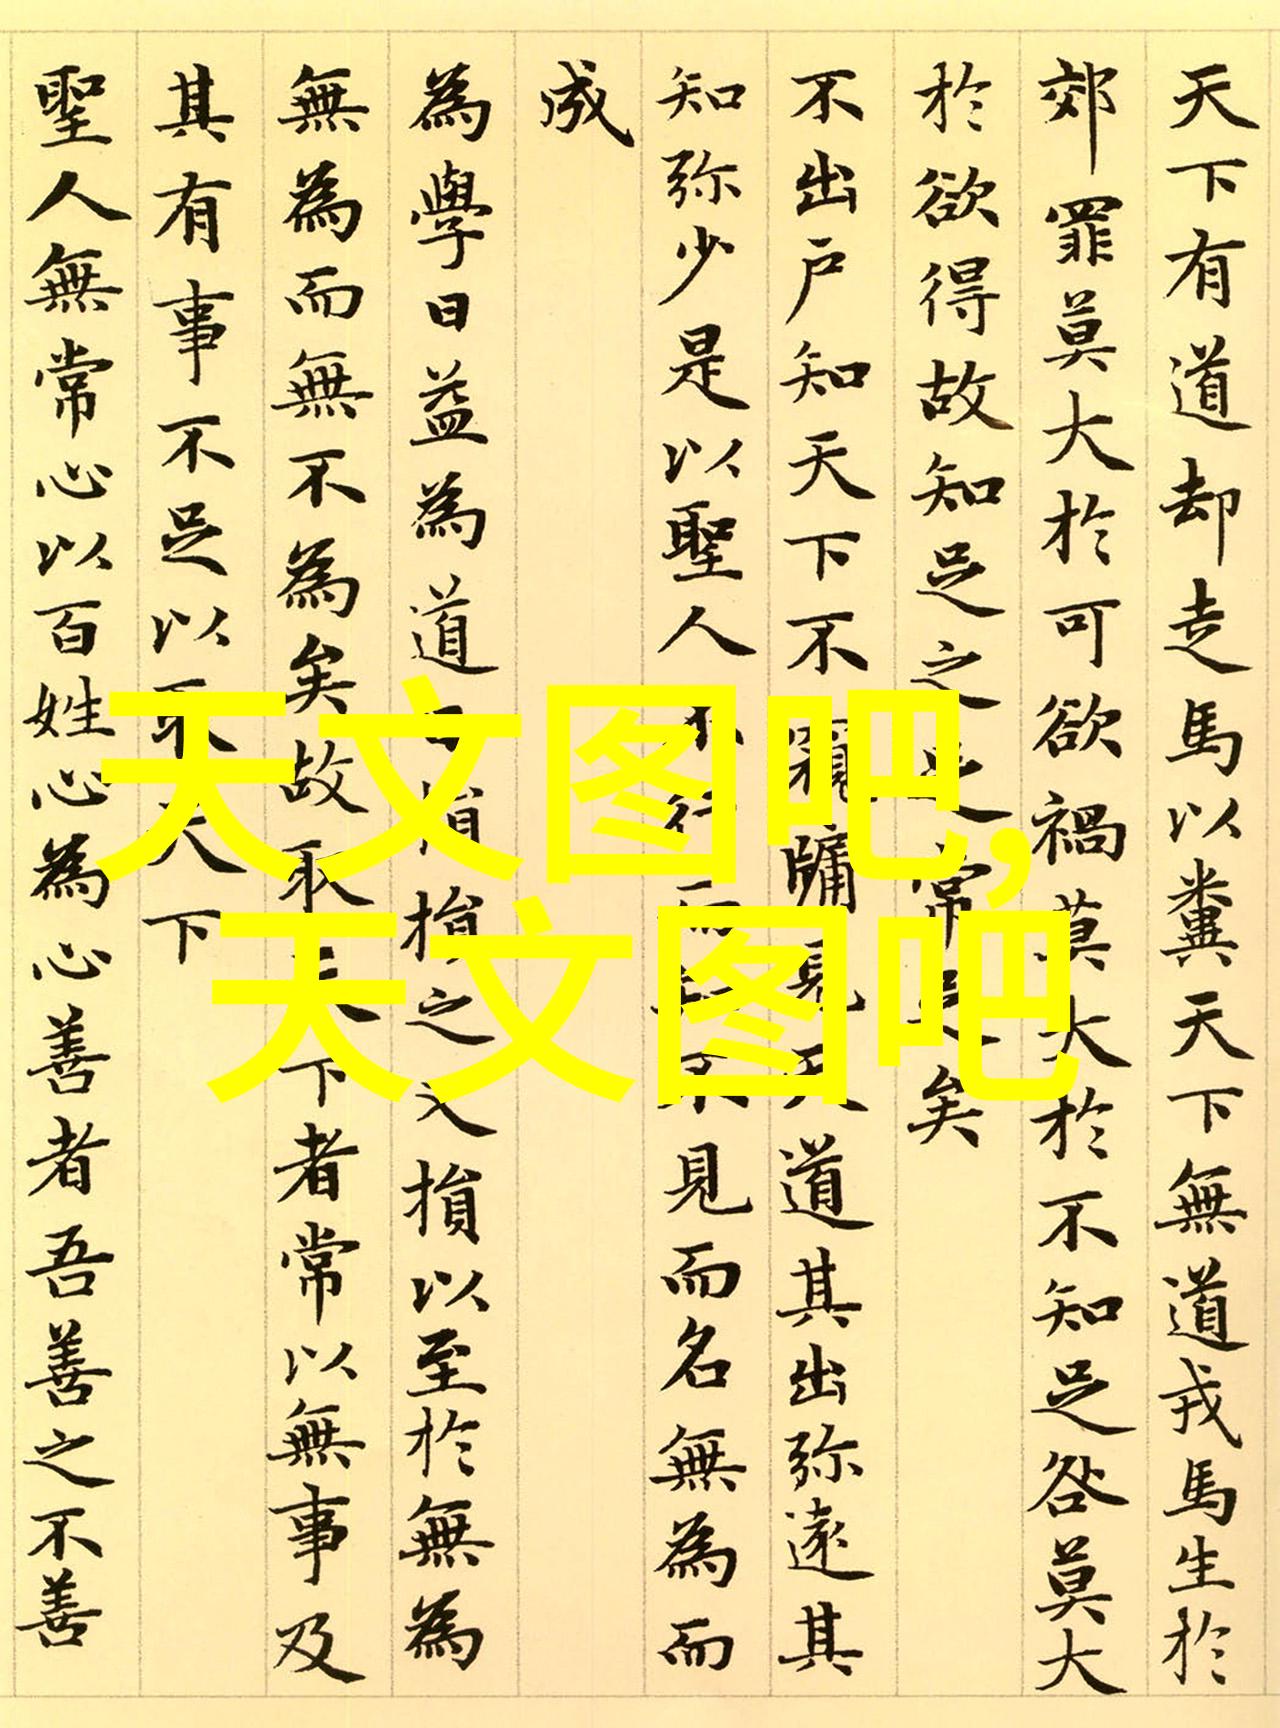 天下有道却走馬以糞天下無道戎馬生於
郊罪莫大於可欲禍莫大於不知足咎莫大
於欲得故知足之足常足矣
不出戶知天下不窺牖見天道其出弥遠其
知弥少是以聖人不行而知不見而名無為而
成
為學日益為道日損損之又損以至於無為
無為而無不為矣故取天下者常以無事及
其有事不足以取天下
聖人無常心以百姓心為心善者吾善之不善
天文图吧,
天文图吧